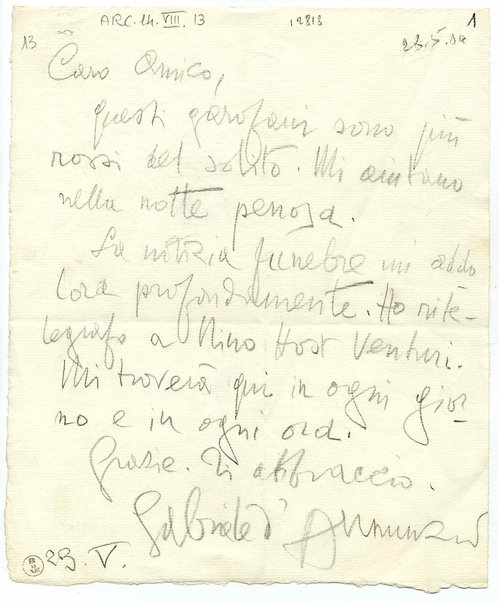 ARC. 14. VIII. 13 12813 1
13 23.5.
Caro Amico,
questi garofani sono più
rossi del solito. Mi aiutano
nella notte penosa.
La notizia funebre mi addo
lora profondamente. Ho rite-
legrafo a Nino Host Venturi.
Mi troverà qui in ogni gior-
no e in ogni ora.
Grazie. Ti abbraccio.
Gabriele d'Annunzio
23. V.